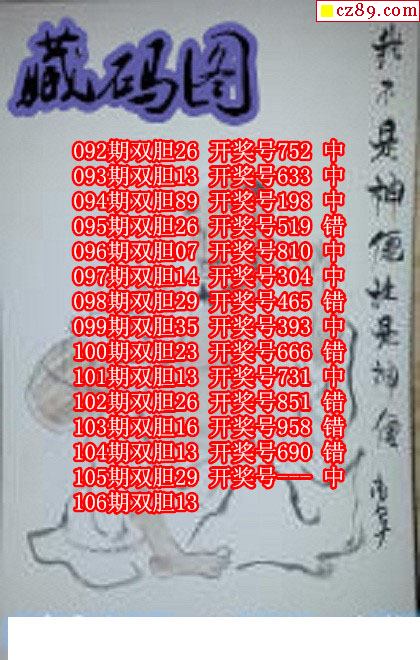 cz89.com
藏码图
092期双胆26 开奖号752 中
093期双胆13 开奖号633 中
094期双胆89 开奖号198 中
095期双胆26 开奖号519 错
096期双胆07 开奖号810 中
097期双胆14 开奖号304 中
098期双胆29 开奖号465 错
099期双胆35 开奖号393 中
100期双胆23 开奖号666 错
101期双胆13 开奖号731 中
102期双胆26 开奖号851 错
103期双胆16 开奖号958 错
104期双胆13 开奖号690 错
105期双胆29 开奖号--- 中
106期双胆13
我不是神
是神